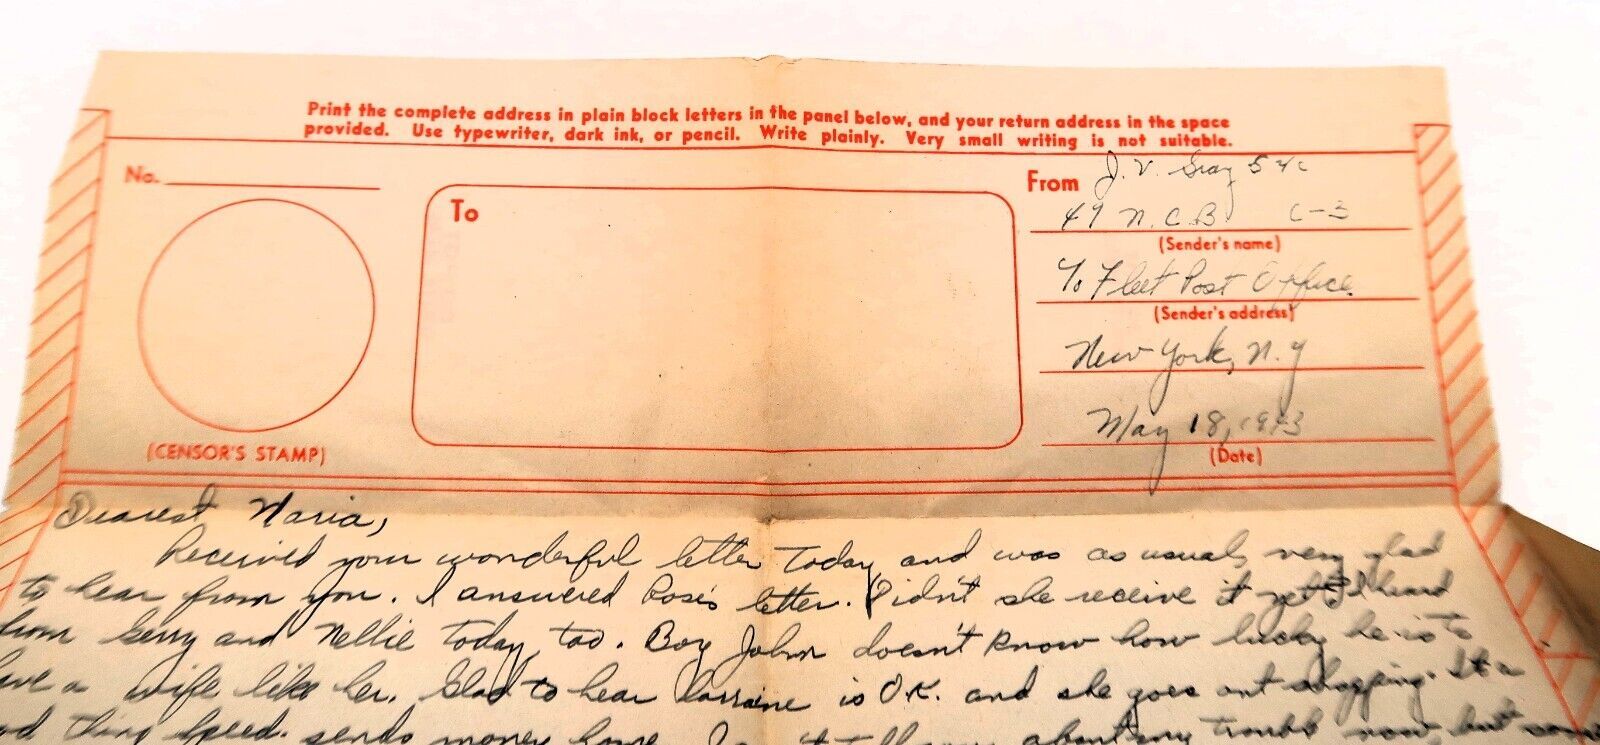 Print the complete address in plain block letters in the panel below, and your return address in the space
provided. Use typewriter, dark ink, or pencil. Write plainly. Very small writing is not suitable.
No.
To
From J. V. Gray S 2/c
49 N.C.B C-3
(Sender's name)
c/o Fleet Post Office
(Sender's address)
New York, N.Y
May 18, 1943
(Date)
(CENSOR'S STAMP)
Dearest Maria,
Received your wonderful letter today and was as usual, very glad
to hear from you. I answered Rose's letter. Didn't she receive it yet? I heard
from Gerry and Nellie today, too. Boy John doesn't know how lucky he is to
have a wife like her. Glad to hear Lorraine is O.K. and she goes out shopping. It a
thing Speed sends money home. about my troubles now, but